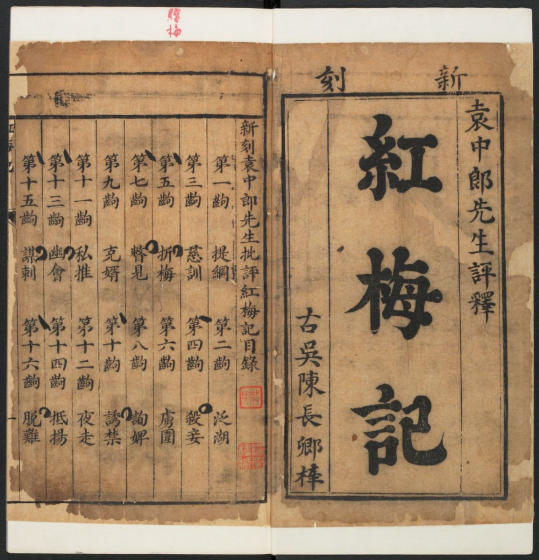 新刻
袁中郎先生評釋
紅梅記
古吳陳長卿梓
新刻袁中郎先生批評紅梅記目錄
第一齣 提綱 第二齣 泛湖
第三齣 慈訓 第四齣 殺妾
第五齣 折梅 第六齣 虜圍
第七齣 瞥見 第八齣 詢婢
第九齣 充婿 第十齣 誘禁
第十一齣 私推 第十二齣 夜走
第十三齣 幽會 第十四齣 抵揚
第十五齣 謀刺 第十六齣 脫難